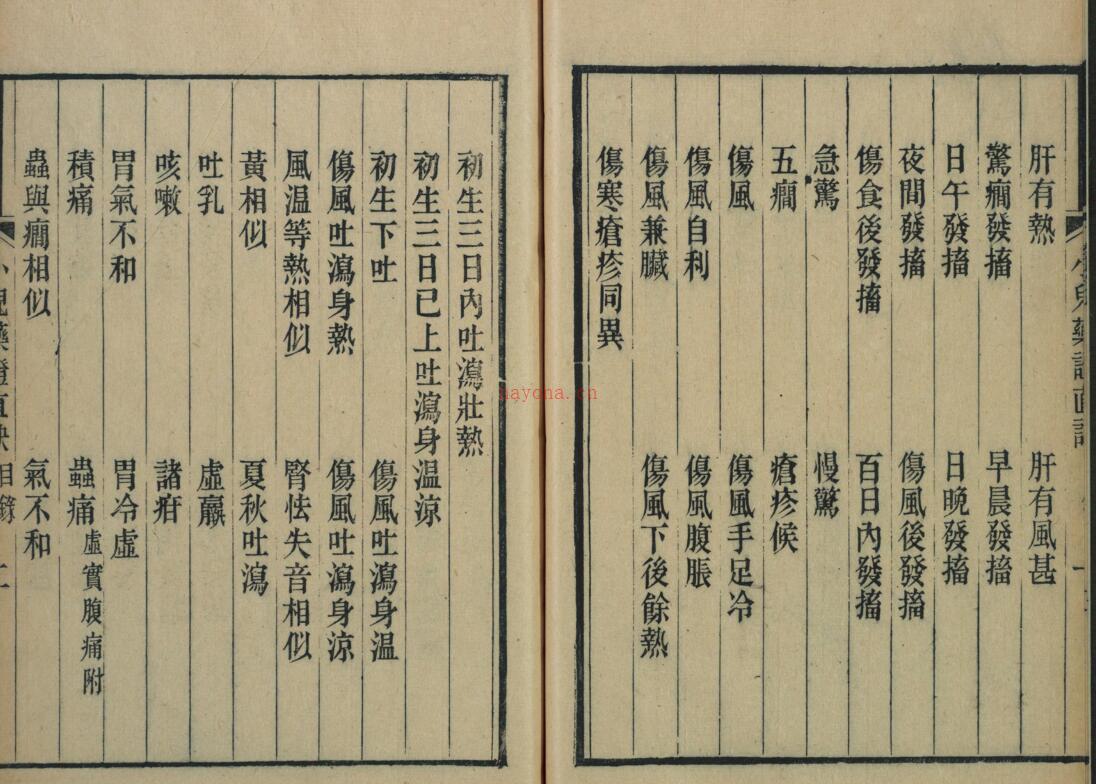 肝有熱 肝有風甚
驚癎發搐 早晨發搐
日午發搐 日晚發搐
夜間發搐 傷風後發搐
傷食後發搐 百日內發搐
急驚 慢驚
五癎 瘡疹候
傷風 傷風手足冷
傷風自利 傷風腹脹
傷風兼臟 傷風下後餘熱
傷寒瘡疹同異
初生三日內吐瀉壯熱
初生三日已上吐瀉身温涼
初生下吐 傷風吐瀉身温
傷風吐瀉身熱 傷風吐瀉身涼
風温等熱相似 腎怯失音相似
黃相似 夏秋吐瀉
吐乳 虛羸
咳嗽 諸疳
胃氣不和 胃冷虛
積痛 蟲痛虛實腹痛附
蟲與癎相似 氣不和
nayona.cn